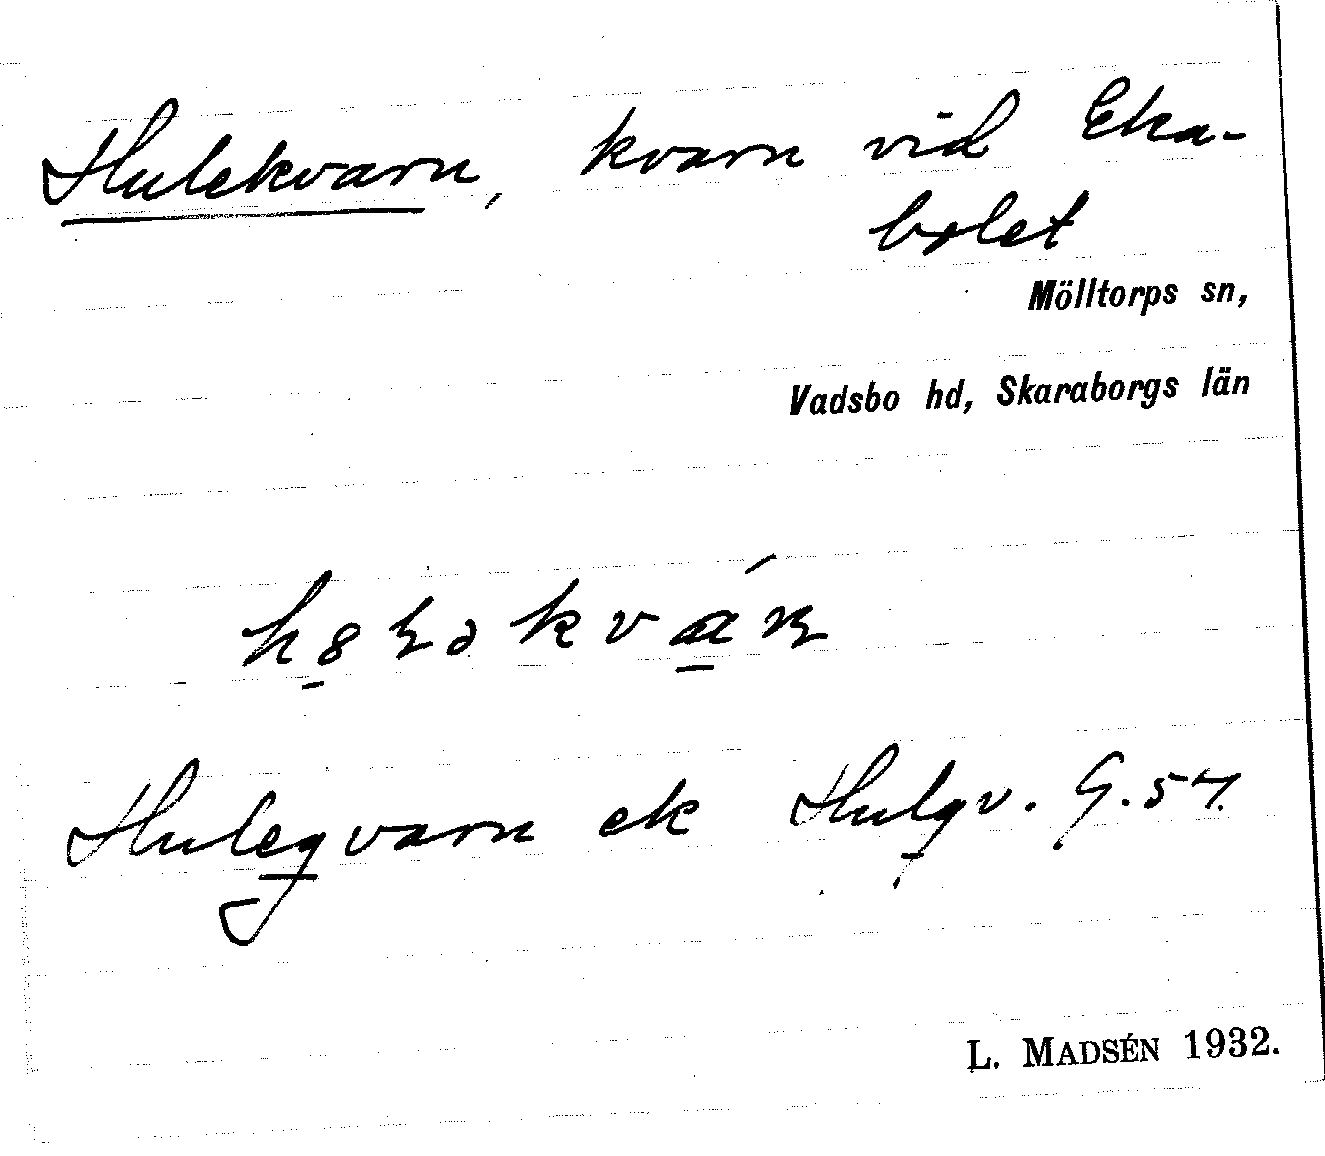 Hulekvarn, kvarn vid Eka-
bolet
Mölltorps sn,
Vadsbo hd, Skaraborgs län
Hulegvarn ek Hulgv. G.57.
L. MADSÉN 1932.